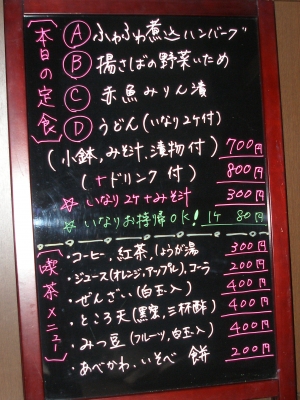 本日の定食
Ⓐ ふわふわ煮込ハンバーグ
Ⓑ 揚さばの野菜いため
Ⓒ 赤魚みりん漬
Ⓓ うどん(いなり2ケ付)
(小鉢,みそ汁,漬物付) 700円
(+ドリンク付) 800円
いなり2ケ+みそ汁 300円
いなりお持帰OK! 1ケ 80円
喫茶メニュー
・コーヒー,紅茶,しょうが湯 300円
・ジュース(オレンジ,アップル),コーラ 200円
・ぜんざい(白玉入) 400円
・ところ天(黒蜜,三杯酢) 400円
・みつ豆(フルーツ,白玉入) 400円
・あべかわ,いそべ餅 200円